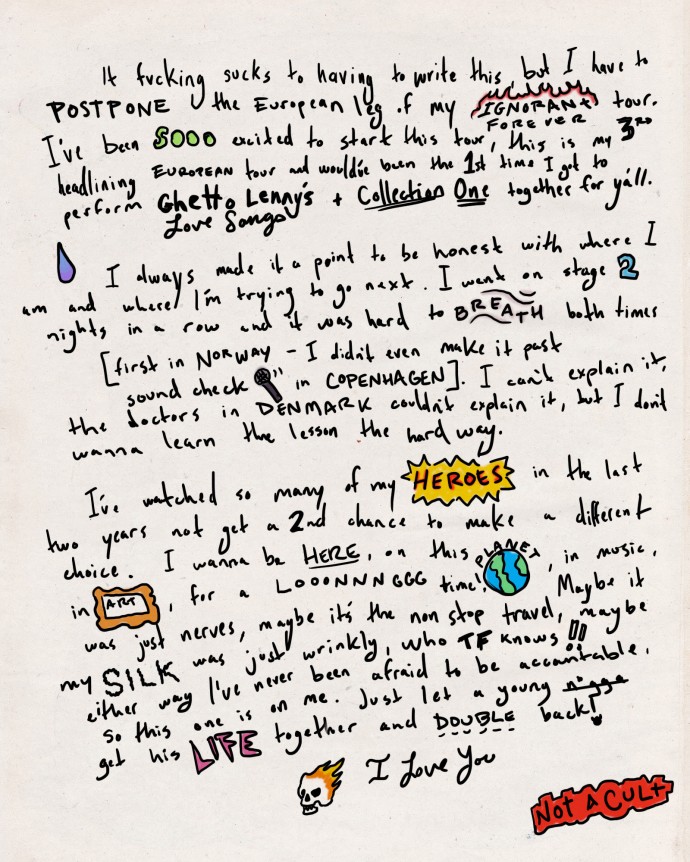 It fvcking sucks to having to write this, but I have to
POSTPONE the European leg of my IGNORANT FOREVER tour.
I've been SOOO excited to start this tour, this is my 3RD
headlining EUROPEAN tour and would've been the 1st time I got to
perform Ghetto Lenny's Love Songs + Collection One together for y'all.
I always made it a point to be honest with where I
am and where I'm trying to go next. I went on stage 2
nights in a row and it was hard to BREATH both times
[first in NORWAY - I didn't even make it past
sound check in COPENHAGEN]. I can't explain it,
the doctors in DENMARK couldn't explain it, but I don't
wanna learn the lesson the hard way.
I've watched so many of my HEROES in the last
two years not get a 2nd chance to make a different
choice. I wanna be HERE, on this PLANET, in music,
in ART, for a LOOONNNGGG time. Maybe it
was just nerves, maybe it's the non stop travel, maybe
my SILK was just wrinkly, who TF knows!!
either way I've never been afraid to be accountable,
so this one is on me. Just let a young nigga
get his LIFE together and DOUBLE back!
I Love You
Not A Cult